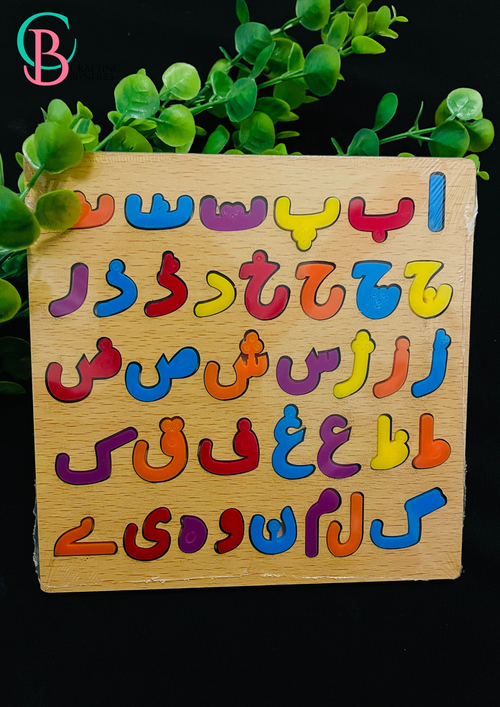 CB
ا ب پ ت ٹ ث
ج چ ح خ د ڈ ذ ر
ڑ ز ژ س ش ص ض
ط ظ ع غ ف ق ک
گ ل م ن و ہ ی ے